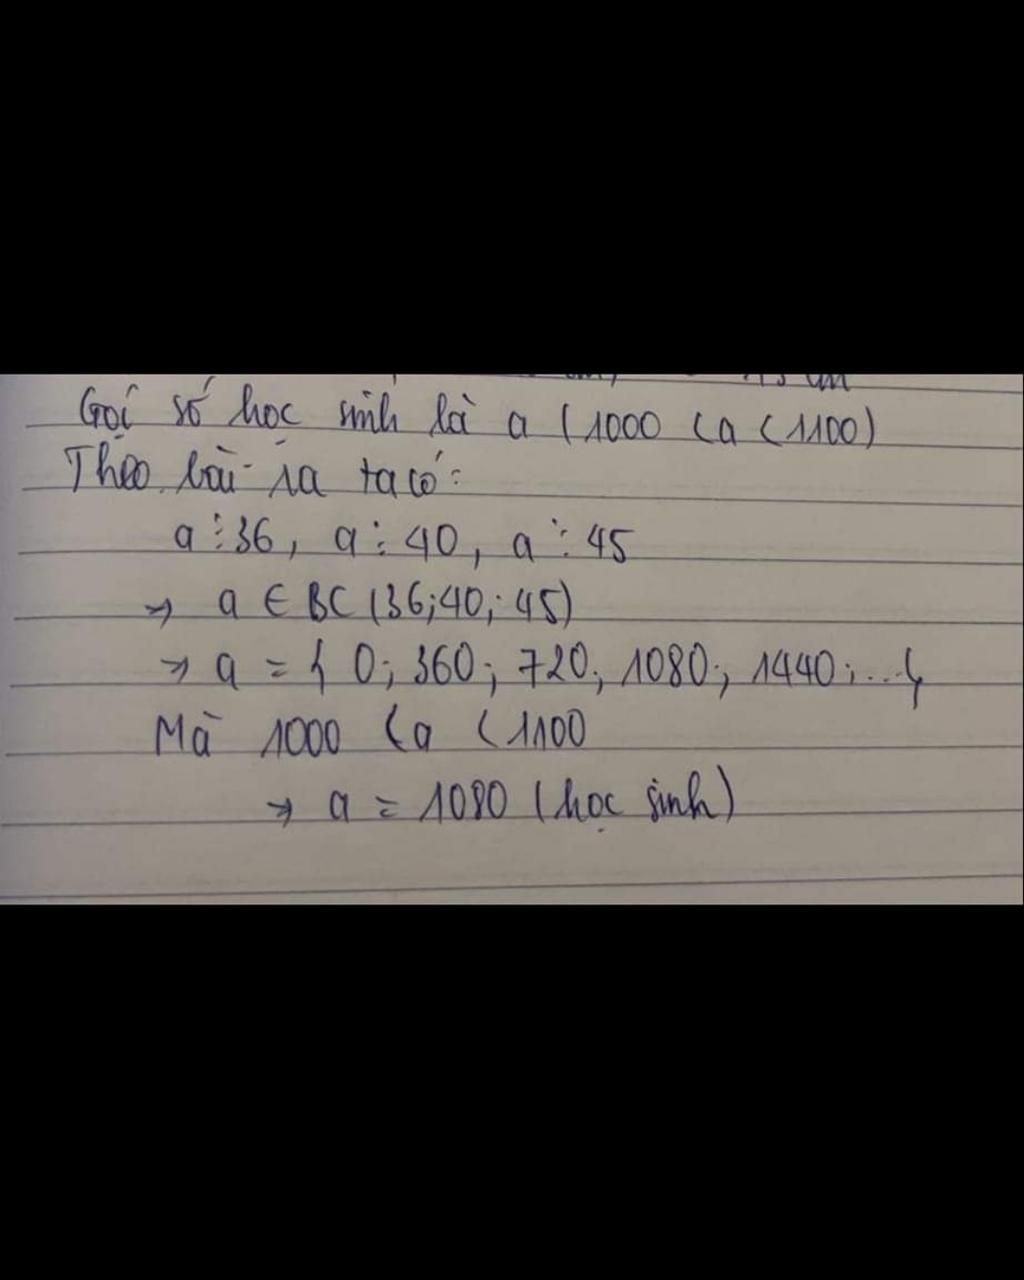 Gọi số học sinh là a (1000 < a < 1100)
Theo bài ra ta có:
a ⋮ 36, a ⋮ 40, a ⋮ 45
⇒ a ∈ BC (36; 40; 45)
⇒ a = { 0; 360; 720; 1080; 1440; ...}
Mà 1000 < a < 1100
⇒ a = 1080 (học sinh)